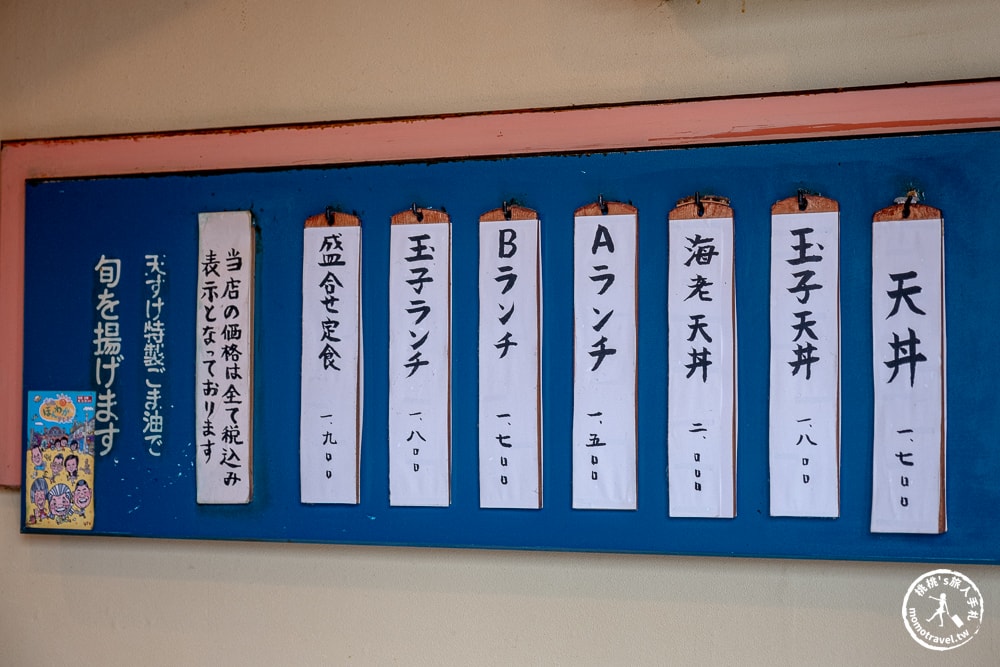 天丼
一、七〇〇
玉子天丼
一、八〇〇
海老天丼
二、〇〇〇
Aランチ
一、五〇〇
Bランチ
一、七〇〇
玉子ランチ
一、八〇〇
盛合せ定食
一、九〇〇
当店の価格は全て税込み
表示となっております
天すけ特製ごま油で
旬を揚げます
桃桃's旅人手札
momotravel.tw